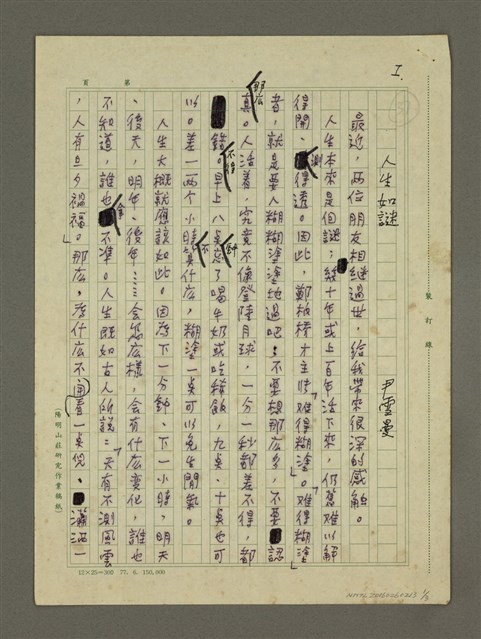 I.
人生如謎
尹雪曼
最近，兩位朋友相繼過世，給我帶來很深的感觸。
人生本來是個謎；幾十年或上百年活下來，仍舊難以解
得開、測得透。因此，鄭板橋才主張「難得糊塗」。「難得糊塗」
者，就是要人糊糊塗塗地過吧！不要想那么多，不要認
真。人活着，究竟不像登陸月球，一分一秒都差不得，都
那么
錯不得。早上八點忘了喝牛奶或吃稀飯，九點、十點也可
以。差一兩个小時算不什么，糊塗一點可以免生閒氣。
人生大概就應該如此。因為下一分鐘、下一小時、明天
、後天，明年、後年……會怎么樣，會有什么变化，誰也
不知道，誰也拿不準。人生既如古人所說：「天有不測風雲
，人有旦夕禍福。」那么，為什么不看開一點兒。瀟洒一
頁 第
裝訂線
（陽明山莊研究作業稿紙）
12×25=300 77. 6. 150,000
NMTL20060060213 1/3